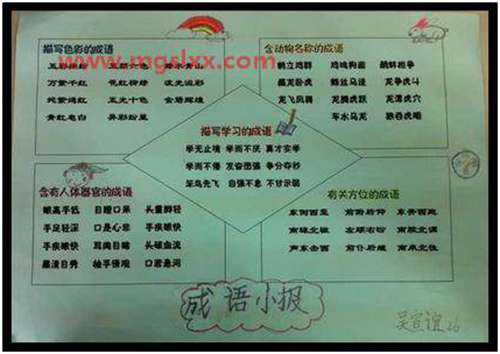 描写色彩的成语
www.mgslxx.com
万紫千红 花红柳绿 流光溢彩
姹紫嫣红 五光十色 金碧辉煌
青红皂白 异彩纷呈
含动物名称的成语
鹤立鸡群 鸡鸣狗盗 鹬蚌相争
画龙点睛 龙争虎斗
龙飞凤舞 龙腾虎跃 龙潭虎穴
车水马龙
描写学习的成语
学无止境 学而不厌 真才实学
学而不倦 发奋图强 争分夺秒
笨鸟先飞 自强不息 不甘示弱
含有人体器官的成语
眼高手低 目瞪口呆 头重脚轻
手足轻深 口是心非 手疾眼快
手疾眼快 耳闻目睹 头破血流
眉清目秀 袖手旁观 口若悬河
有关方位的成语
东倒西歪 前俯后仰 东奔西跑
南辕北辙 左顾右盼 南腔北调
声东击西 前仆后继 南来北往
成语小报